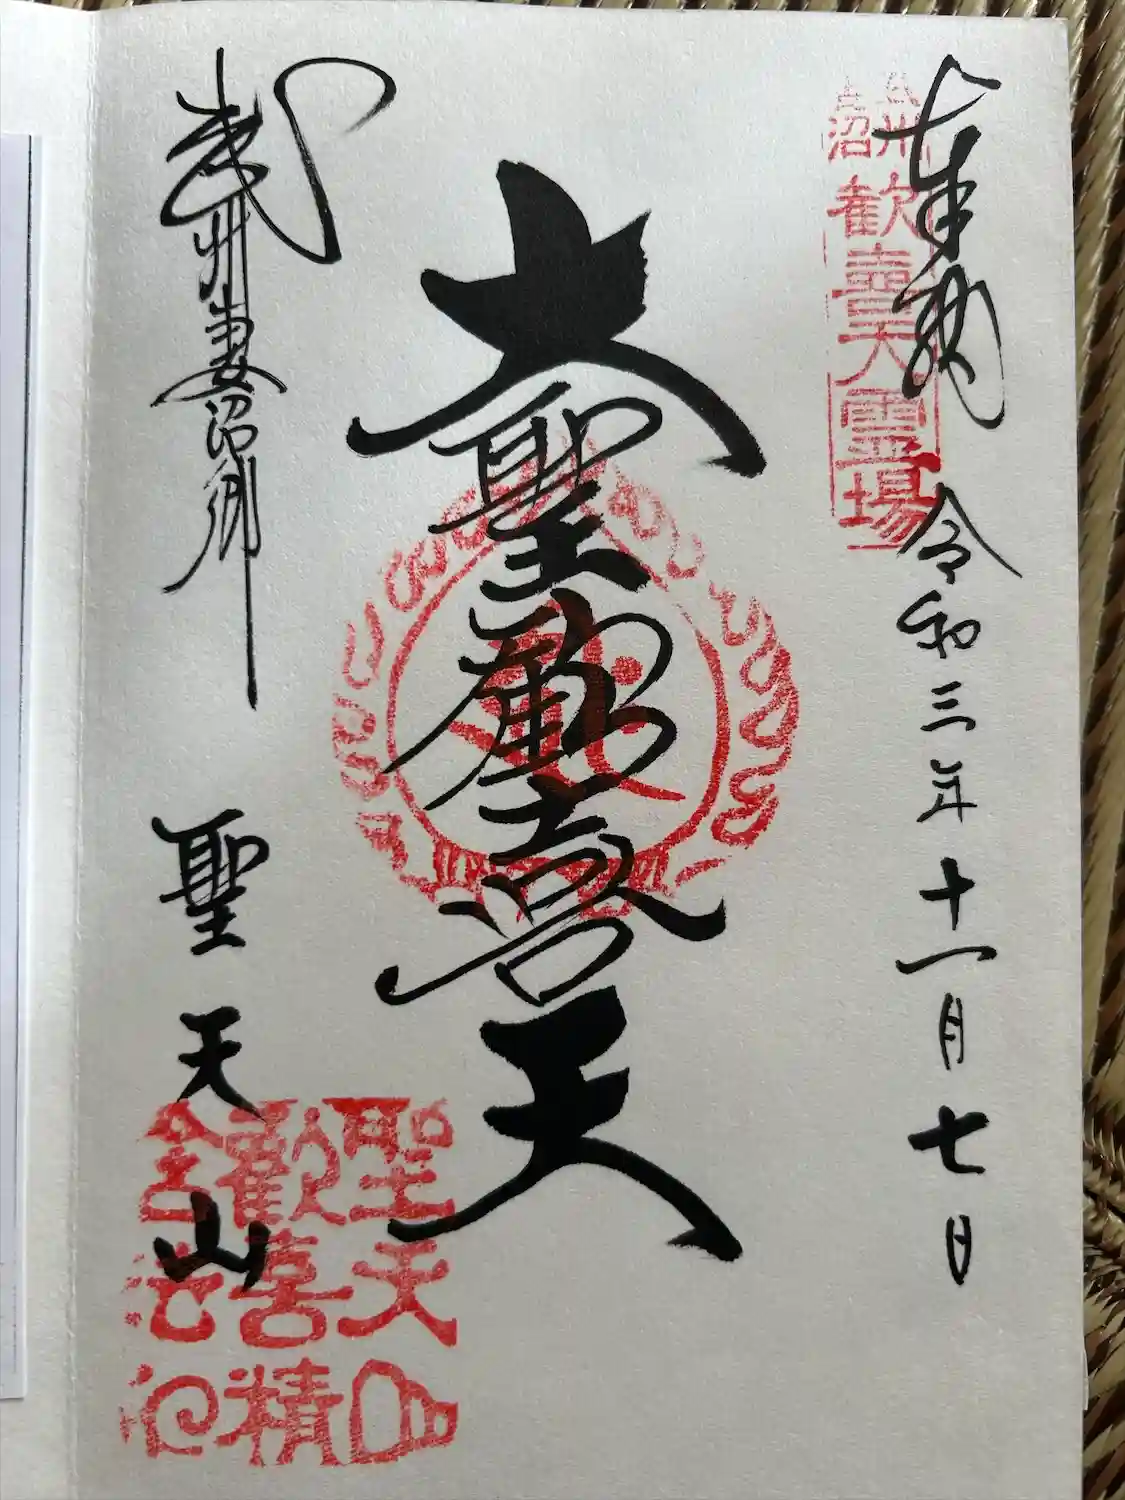 奉拝 令和三年十一月七日
武州妻沼 歓喜天霊場
大聖歓喜天
武州妻沼郷
聖天山
聖天山
歓喜精
舎法印